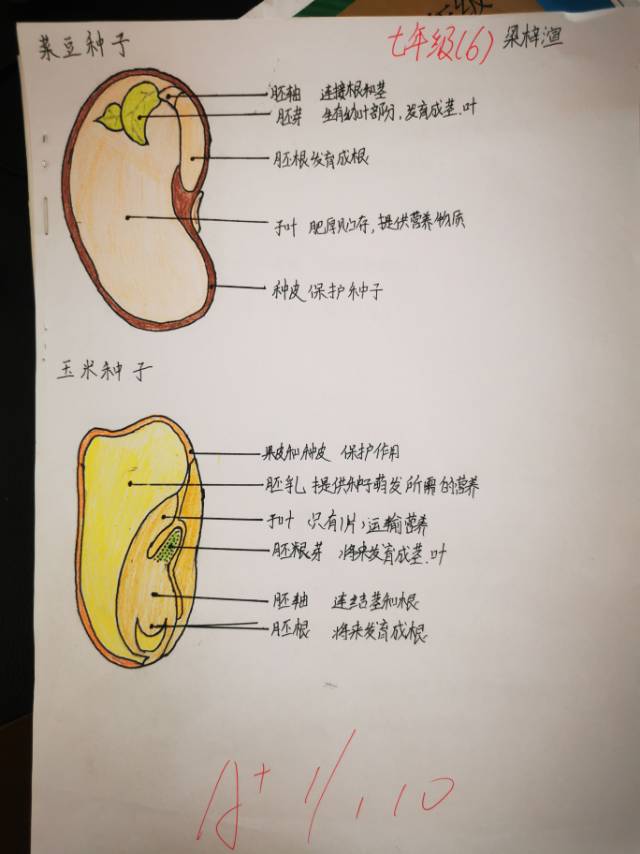 菜豆种子 七年级(6) 梁梓渲
胚轴 连接根和茎
胚芽 生有幼叶部分,发育成茎.叶
胚根发育成根
子叶 肥厚贮存,提供营养物质
种皮 保护种子
玉米种子
果皮和种皮 保护作用
胚乳 提供种子萌发所需的营养
子叶 只有1片,运输营养
胚根芽 将来发育成茎.叶
胚轴 连结茎和根
胚根 将来发育成根
A+ 11/.10